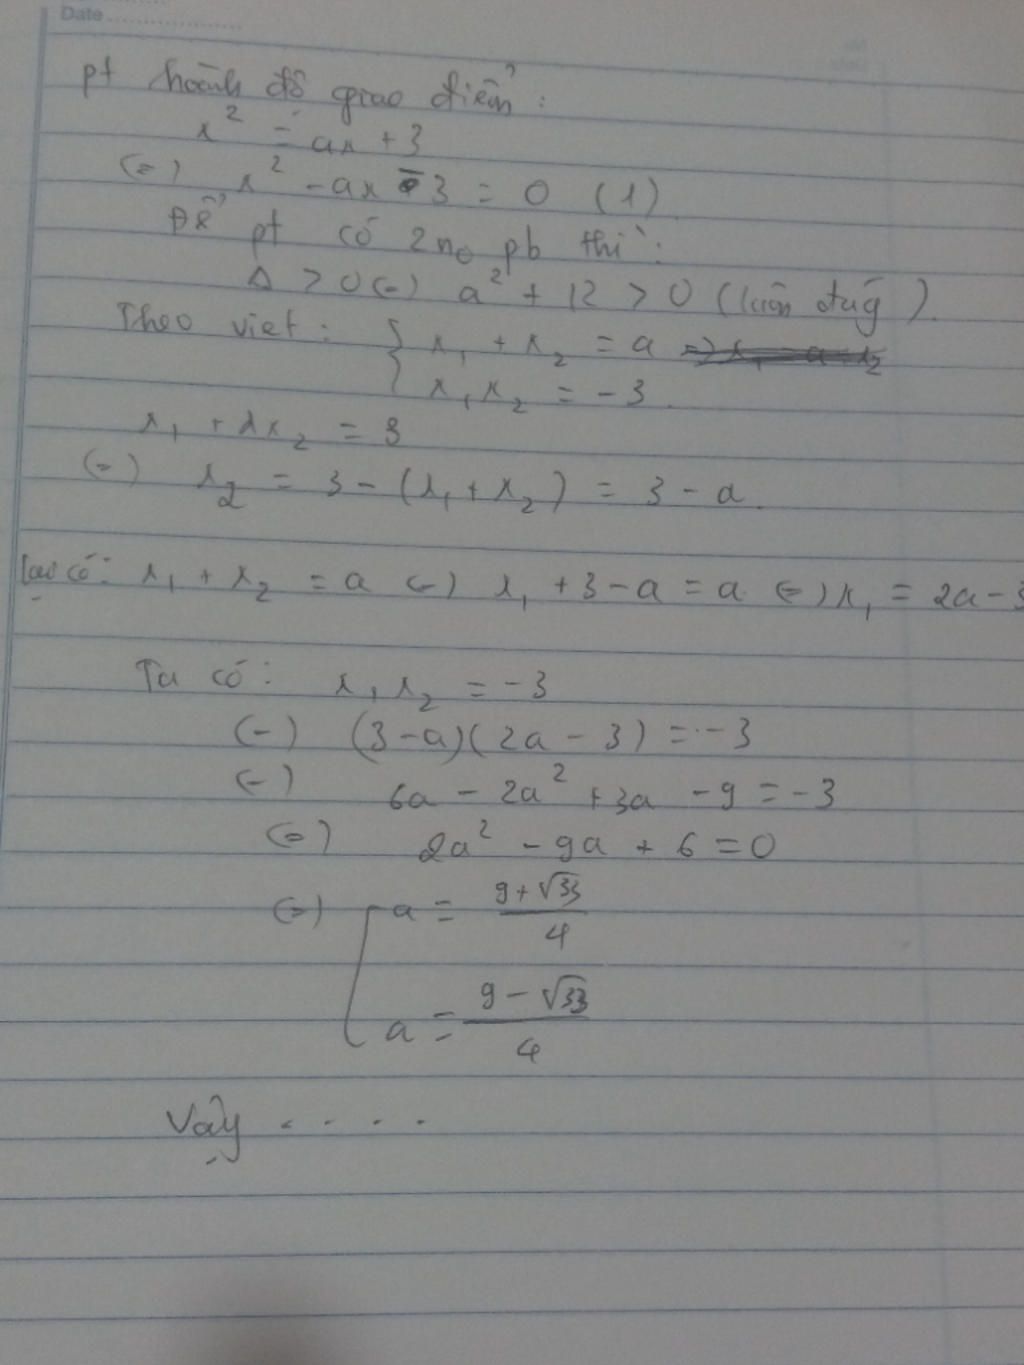 Date
pt hoành độ giao điểm :
x² = ax + 3
(=) x² - ax - 3 = 0 (1)
Để pt có 2 n₀ pb thì :
Δ > 0 (=) a² + 12 > 0 (luôn đúg).
Theo viet : { x₁ + x₂ = a
x₁x₂ = -3.
x₁ + 2x₂ = 3
(=) x₂ = 3 - (x₁ + x₂) = 3 - a.
Lại có : x₁ + x₂ = a (=) x₁ + 3 - a = a (=) x₁ = 2a - 3
Ta có : x₁x₂ = -3
(=) (3 - a)(2a - 3) = -3
(=) 6a - 2a² + 3a - 9 = -3
(=) 2a² - 9a + 6 = 0
(=) [ a = (9 + √33)/4
a = (9 - √33)/4
Vậy . . . .